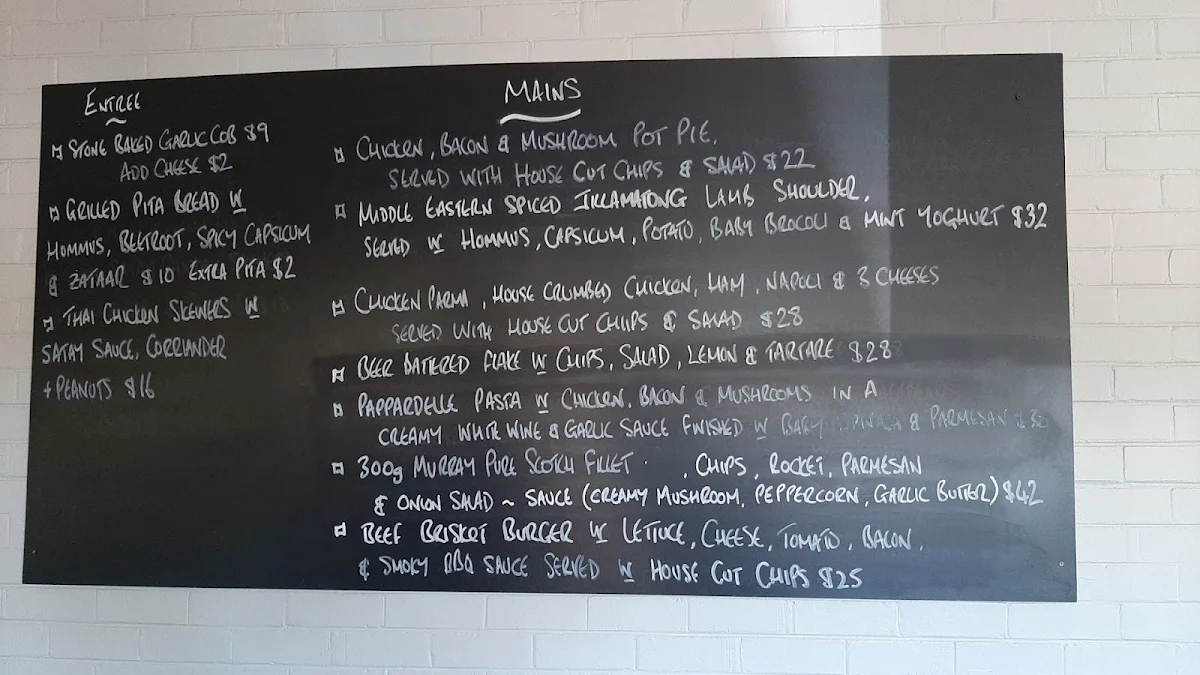 ENTREE
STONE BAKED GARLIC COB $9
ADD CHEESE $2
GRILLED PITA BREAD W
HOMMUS, BEETROOT, SPICY CAPSICUM
& ZATAAR $10 EXTRA PITA $2
THAI CHICKEN SKEWERS W
SATAY SAUCE, CORRIANDER
+ PEANUTS $16
MAINS
CHICKEN, BACON & MUSHROOM POT PIE,
SERVED WITH HOUSE CUT CHIPS & SALAD $22
MIDDLE EASTERN SPICED LAMB SHOULDER,
SERVED W HOMMUS, CAPSICUM, POTATO, BABY BROCOLI & MINT YOGHURT $32
CHICKEN PARMA, HOUSE CRUMBED CHICKEN, HAM, NAPOLI & 3 CHEESES
SERVED WITH HOUSE CUT CHIPS & SALAD $28
BEER BATTERED FLAKE W CHIPS, SALAD, LEMON & TARTARE $28
PAPPARDELLE PASTA W CHICKEN, BACON & MUSHROOMS IN A
CREAMY WHITE WINE & GARLIC SAUCE FINISHED W BABY SPINACH & PARMESAN $30
300g MURRAY PURE SCOTCH FILLET . , CHIPS, ROCKET, PARMESAN
& ONION SALAD ~ SAUCE (CREAMY MUSHROOM, PEPPERCORN, GARLIC BUTTER) $42
BEEF BRISKET BURGER W LETTUCE, CHEESE, TOMATO, BACON,
& SMOKY BBQ SAUCE SERVED W HOUSE CUT CHIPS $25